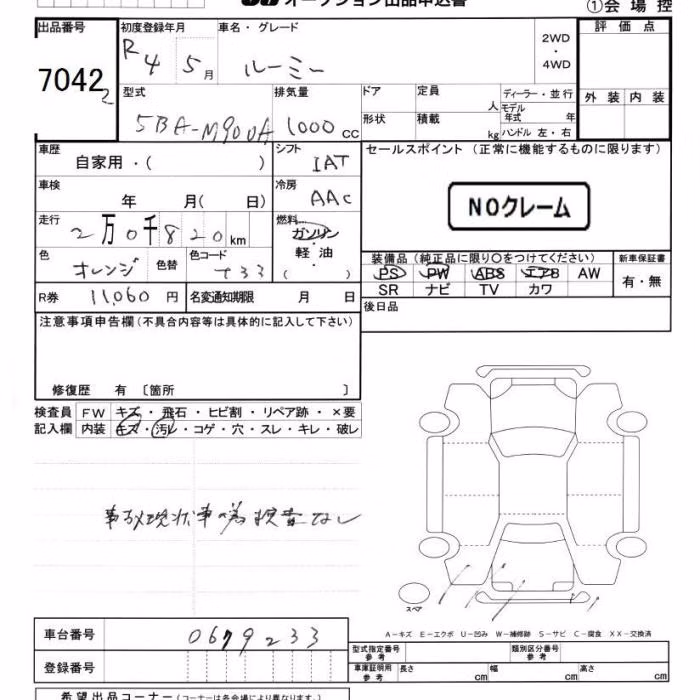 オークション出品申込書
①会場控
出品番号 初度登録年月 車名・グレード 評価点
7042 2 R4 5月 ルーミー 2WD・4WD
外装 内装
型式 排気量 ドア 定員 人 ディーラー・並行
5BA-M900A 1000cc 形状 積載 kg モデル年式 年
ハンドル 左・右
車歴 自家用・( ) シフト IAT セールスポイント (正常に機能するものに限ります)
車検 年 月( 日) 冷房 AAC NOクレーム
走行 2万0千820km 燃料 ガソリン・軽油・( )
色 オレンジ 色替 色コード T33
装備品(純正品に限り○をつけてください) 新車保証書
PS PW ABS エアB AW 有・無
SR ナビ TV カワ
R券 11,060円 名変通知期限 月 日 後日品
注意事項申告欄(不具合内容等は具体的に記入して下さい)
修復歴 有〔箇所 〕
検査員 FW キズ・飛石・ヒビ割・リペア跡・×要
記入欄 内装 キズ・汚レ・コゲ・穴・スレ・キレ・破レ
事故現状車の為検査なし
スペア
A-キズ E-エクボ U-凹み W-補修跡 S-サビ C-腐食 XX-交換済
車台番号 0679233 型式指定番号 参考 類別区分番号 参考
登録番号 車庫証明用 参考 長さ cm 幅 cm 高さ cm
希望出品コーナー(コーナーは各会場により異なります)